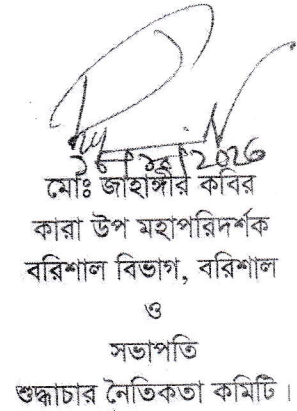 মোঃ জাহাঙ্গীর কবির
কারা উপ মহাপরিদর্শক
বরিশাল বিভাগ, বরিশাল
ও
সভাপতি
শুদ্ধাচার নৈতিকতা কমিটি।